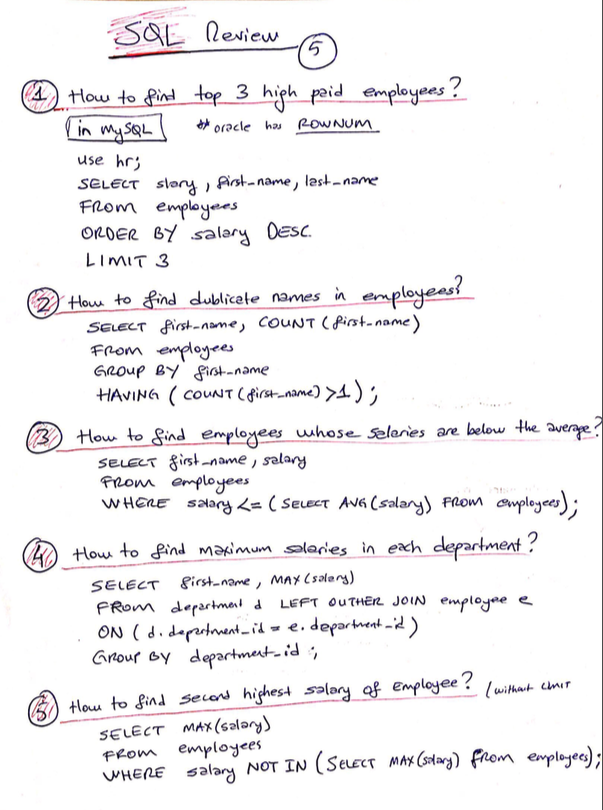 SQL Review
5
1 How to find top 3 high paid employees?
in MySQL # oracle has ROWNUM
use hr;
SELECT slary, first_name, last_name
FROM employees
ORDER BY salary DESC.
LIMIT 3
2 How to find dublicate names in employees?
SELECT first_name, COUNT(first_name)
FROM employees
GROUP BY first_name
HAVING (COUNT(first_name) >1);
3 How to find employees whose salaries are below the average?
SELECT first_name, salary
FROM employees
WHERE salary <= (SELECT AVG(salary) FROM employees);
4 How to find maximum salaries in each department?
SELECT first_name, MAX(salary)
FROM department d LEFT OUTHER JOIN employee e
ON (d.department_id = e.department_id)
Group BY department_id;
5 How to find second highest salary of Employee? /without LIMIT
SELECT MAX(salary)
FROM employees
WHERE salary NOT IN (SELECT MAX(salary) From employees);